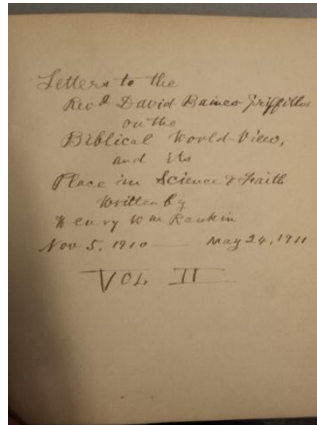 Letters to the
Revd David Baines Griffiths
on the
Biblical World-View,
and its
Place in Science & Faith
Written by
Henry Wm Rankin
Nov 5, 1910 — May 24, 1911
VOL II